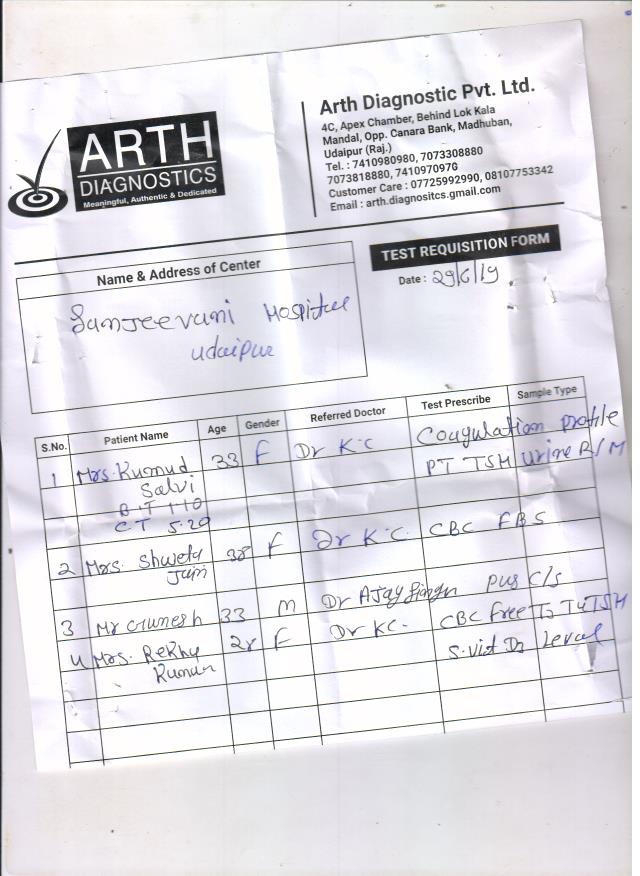 ARTH
DIAGNOSTICS
Meaningful, Authentic & Dedicated
Arth Diagnostic Pvt. Ltd.
4C, Apex Chamber, Behind Lok Kala
Mandal, Opp. Canara Bank, Madhuban,
Udaipur (Raj.)
Tel. : 7410980980, 7073308880
7073818880, 7410970976
Customer Care : 07725992990, 08107753342
Email : arth.diagnositcs.gmail.com
TEST REQUISITION FORM
Date : 29/6/19
Name & Address of Center
Sanjeevani Hospital
Udaipur
S.No. Patient Name Age Gender Referred Doctor Test Prescribe Sample Type
1 Mrs. Kumud 33 F Dr K.C Coagulation profile
Salvi PT TSH Urine R/M
B.T 1.10
C.T 5.20
2 Mrs. Shweta 38 F Dr K.C. CBC FBS
Jain
3 Mr Gunesh 33 M Dr Ajay Singh Pus C/s
4 Mrs. Rekha F Dr KC. CBC Free T3 T4 TSH
Kumar S. Vit D3 Leval